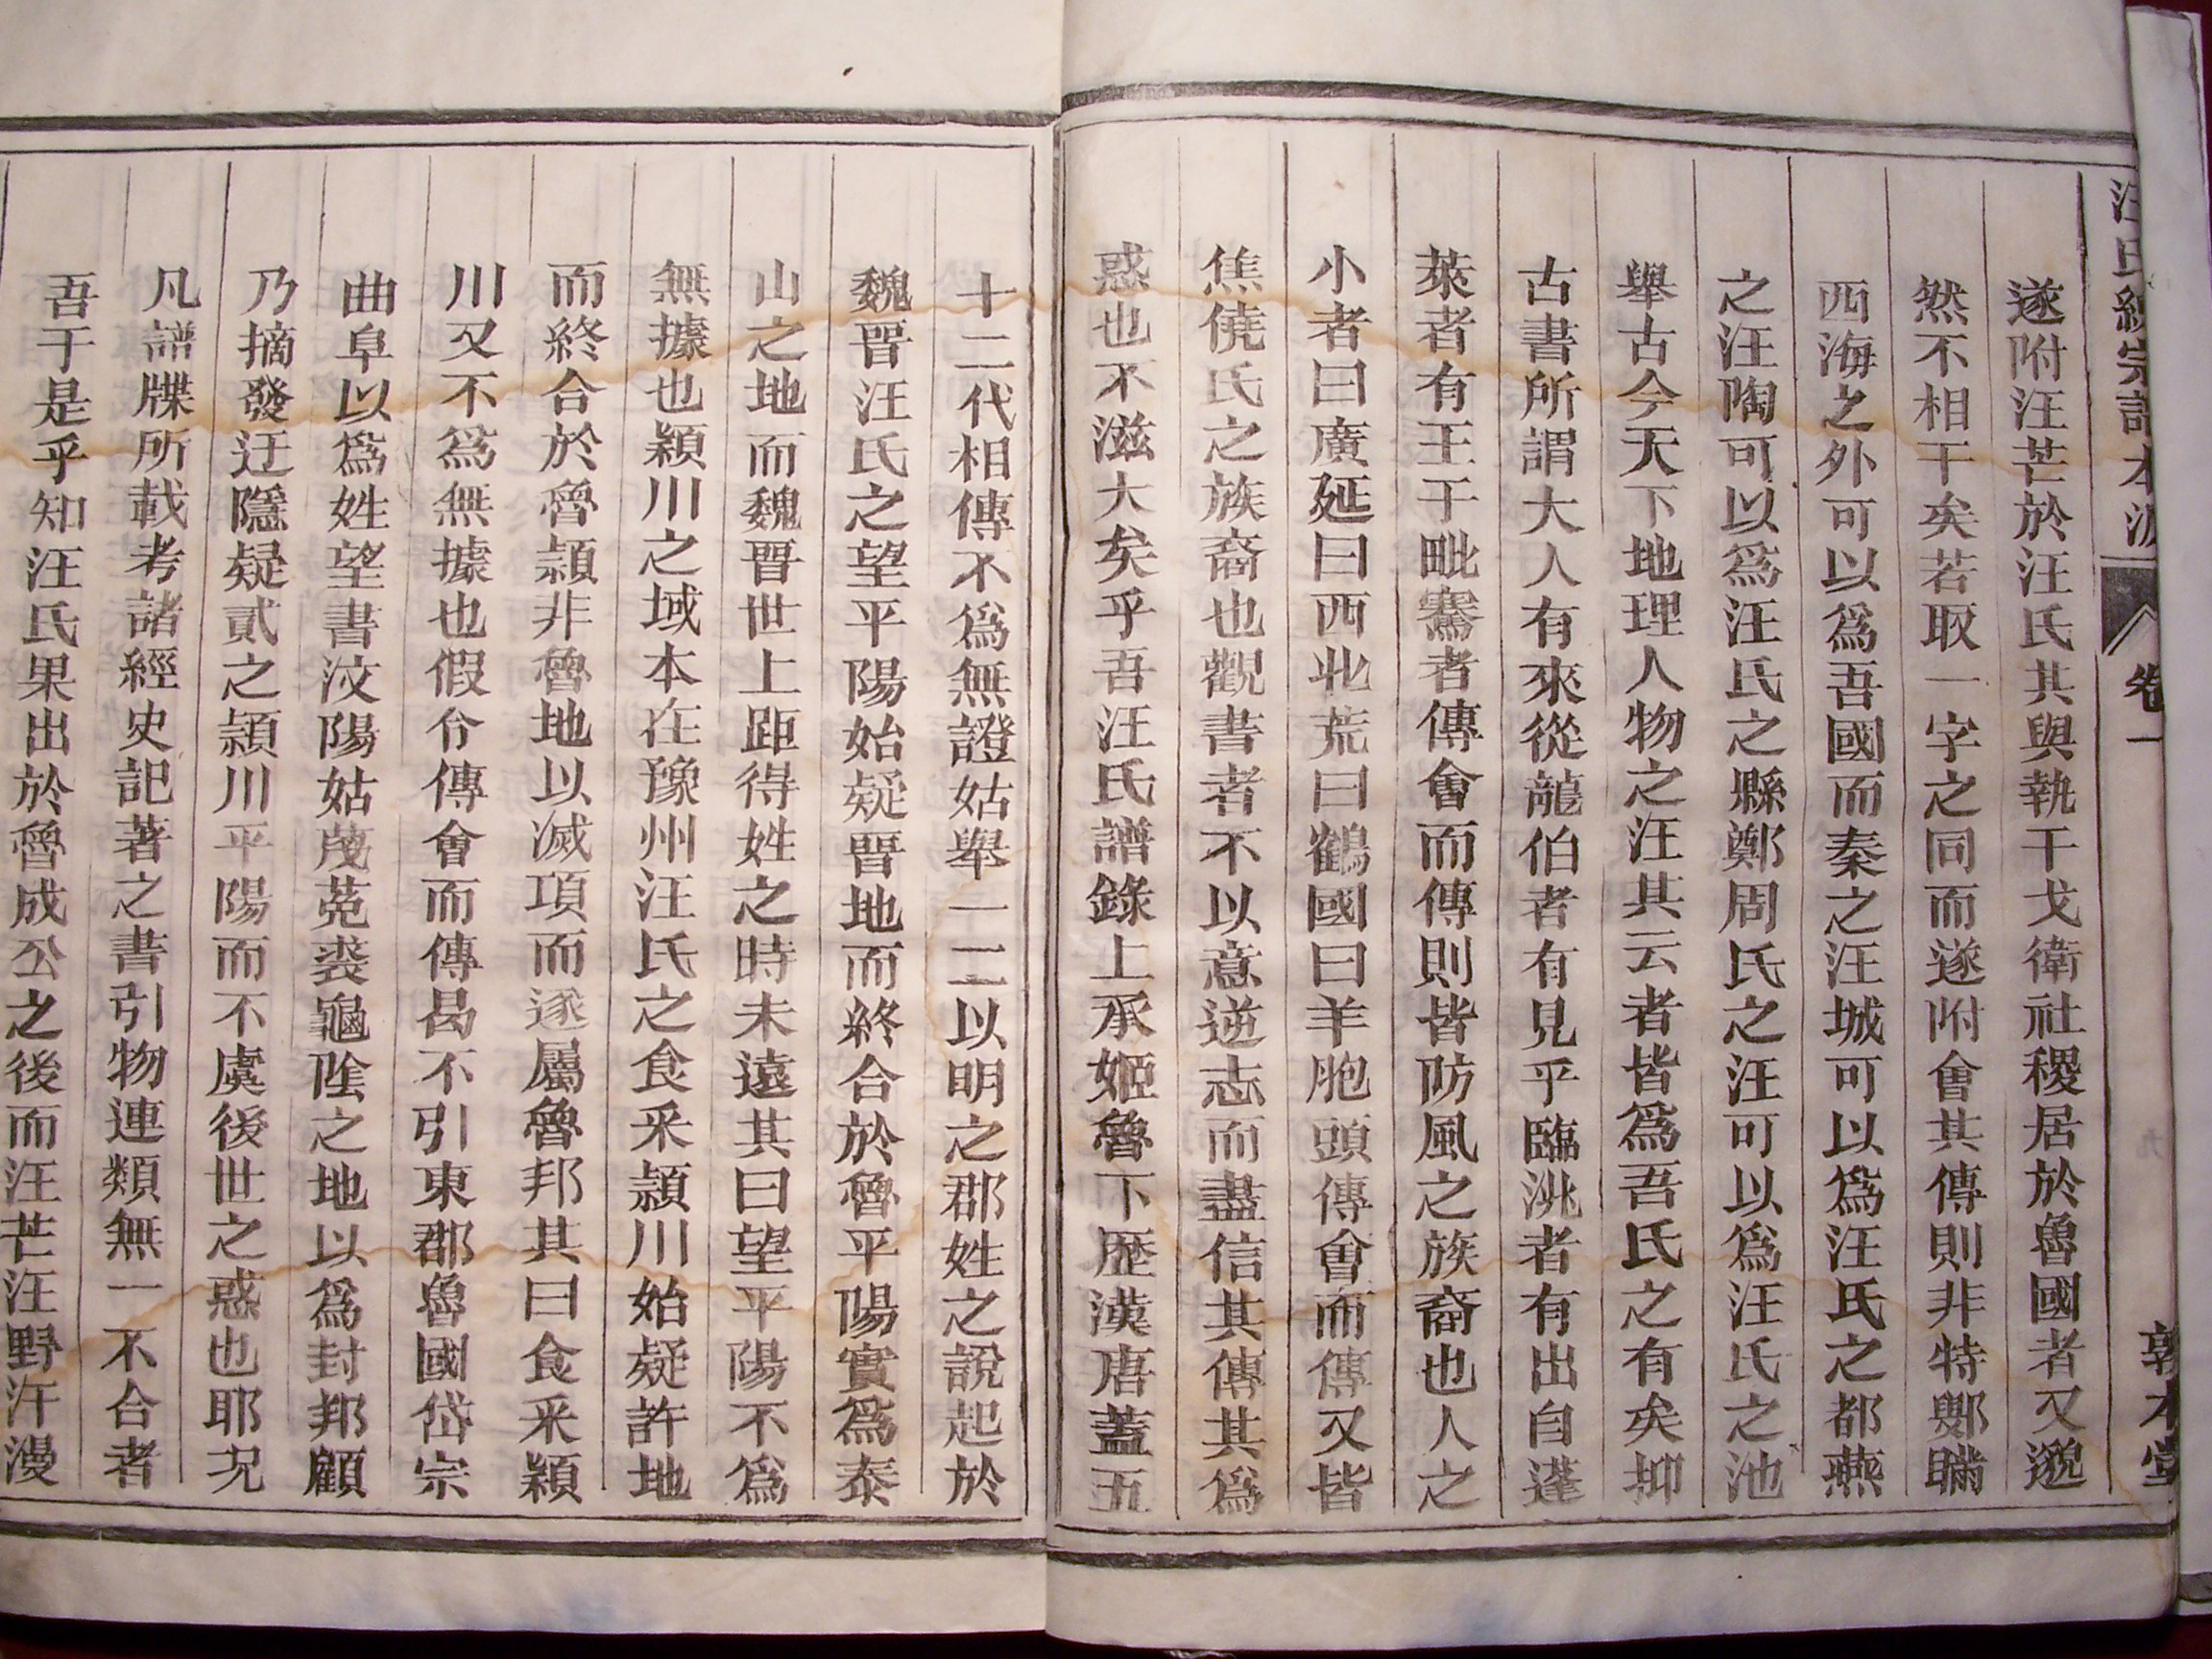 汪氏統宗譜本源 卷一 敦本堂
遂附汪芒於汪氏其與執干戈衛社稷居於魯國者又邈
然不相干矣若取一字之同而遂附會其傳則非特鄭瞞
西海之外可以爲吾國而秦之汪城可以爲汪氏之都燕
之汪陶可以爲汪氏之縣鄭周氏之汪可以爲汪氏之池
舉古今天下地理人物之汪其云者皆爲吾氏之有矣抑
古書所謂大人有來從龍伯者有見乎臨洮者有出自蓬
萊者有王干毗騫者傳會而傳則皆防風之族裔也人之
小者曰廣延曰西北荒曰鶴國曰羊胞頭傳會而傳又皆
焦僥氏之族裔也觀書者不以意逆志而盡信其傳其爲
惑也不滋大矣乎吾汪氏譜錄上承姬魯下歷漢唐蓋五
十二代相傳不爲無證姑舉一二以明之郡姓之說起於
魏晉汪氏之望平陽始疑晉地而終合於魯平陽實爲泰
山之地而魏晉世上距得姓之時未遠其曰望平陽不爲
無據也潁川之域本在豫州汪氏之食采潁川始疑許地
而終合於魯潁非魯地以滅項而遂屬魯邦其曰食采潁
川又不爲無據也假令傳會而傳曷不引東郡魯國岱宗
曲阜以爲姓望書汶陽姑蔑菟裘龜陰之地以爲封邦顧
乃摘發迂隱疑貳之潁川平陽而不虞後世之惑也耶況
凡譜牒所載考諸經史記著之書引物連類無一不合者
吾于是乎知汪氏果出於魯成公之後而汪芒汪野汗漫